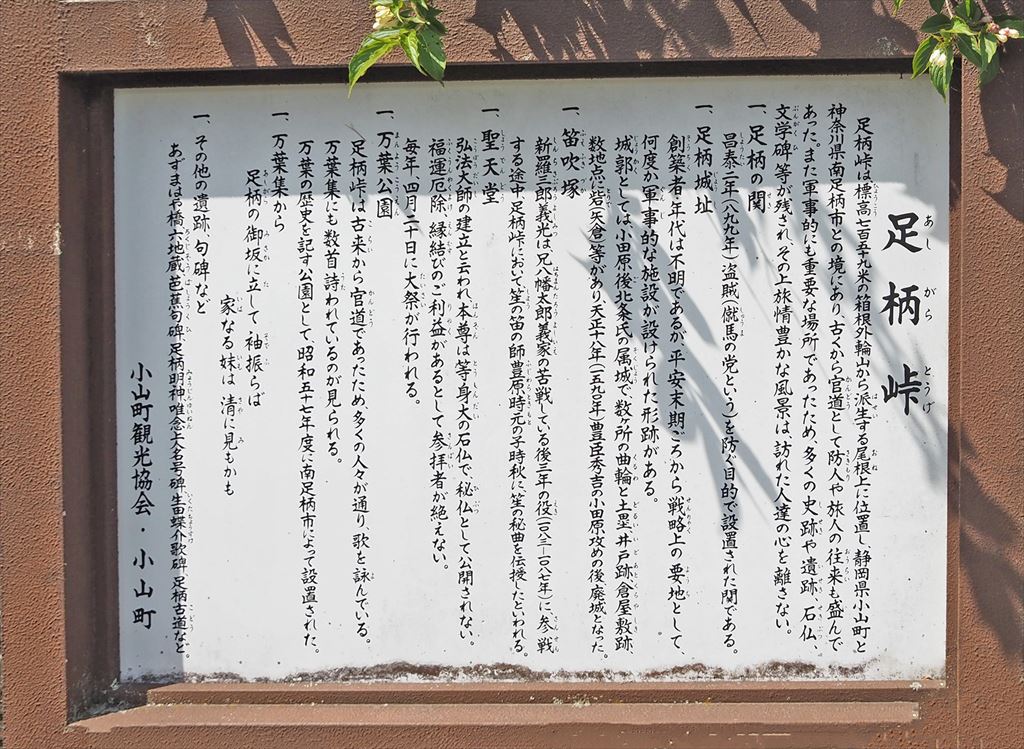 足柄峠
足柄峠は標高七百五十九米の箱根外輪山から派生する尾根上に位置し静岡県小山町と
神奈川県南足柄市との境にあり、古くから官道として防人や旅人の往来も盛んで
あった。また軍事的にも重要な場所であったため、多くの史跡や遺跡、石仏、
文学碑等が残され、その上旅情豊かな風景は、訪れた人達の心を離さない。
一、足柄の関
昌泰二年(八九九年)盗賊(僦馬の党という)を防ぐ目的で設置された関である。
一、足柄城址
創築者、年代は不明であるが、平安末期ごろから戦略上の要地として、
何度か軍事的な施設が設けられた形跡がある。
城郭としては、小田原後北条氏の属城で数ヶ所の曲輪と土塁、井戸跡、倉屋敷跡、
数地点に岩(矢倉)等があり天正十八年(一五九〇年)豊臣秀吉の小田原攻めの後廃城となった。
一、笛吹塚
新羅三郎義光は兄八幡太郎義家の苦戦している後三年の役(一〇八三―一〇八七年)に、参戦
する途中足柄峠において笙の笛の師豊原時元の子時秋に笙の秘曲を伝授したといわれる。
一、聖天堂
弘法大師の建立と云われ、本尊は等身大の石仏で、秘仏として公開されない。
福運厄除、縁結びのご利益があるとして参拝者が絶えない。
毎年、四月二十日に大祭が行われる。
一、万葉公園
足柄峠は古来から官道であったため、多くの人々が通り、歌を詠んでいる。
万葉集にも数首詩われているのが見られる。
万葉の歴史を記す公園として昭和五十七年度に南足柄市によって設置された。
一、万葉集から
足柄の御坂に立して 袖振らば
家なる妹は 清に見もかも
一、その他の遺跡、句碑など
あずまはや橋、六地蔵、芭蕉句碑、足柄明神、唯念上人名号碑、生田蝶介歌碑、足柄古道など。
小山町観光協会・小山町